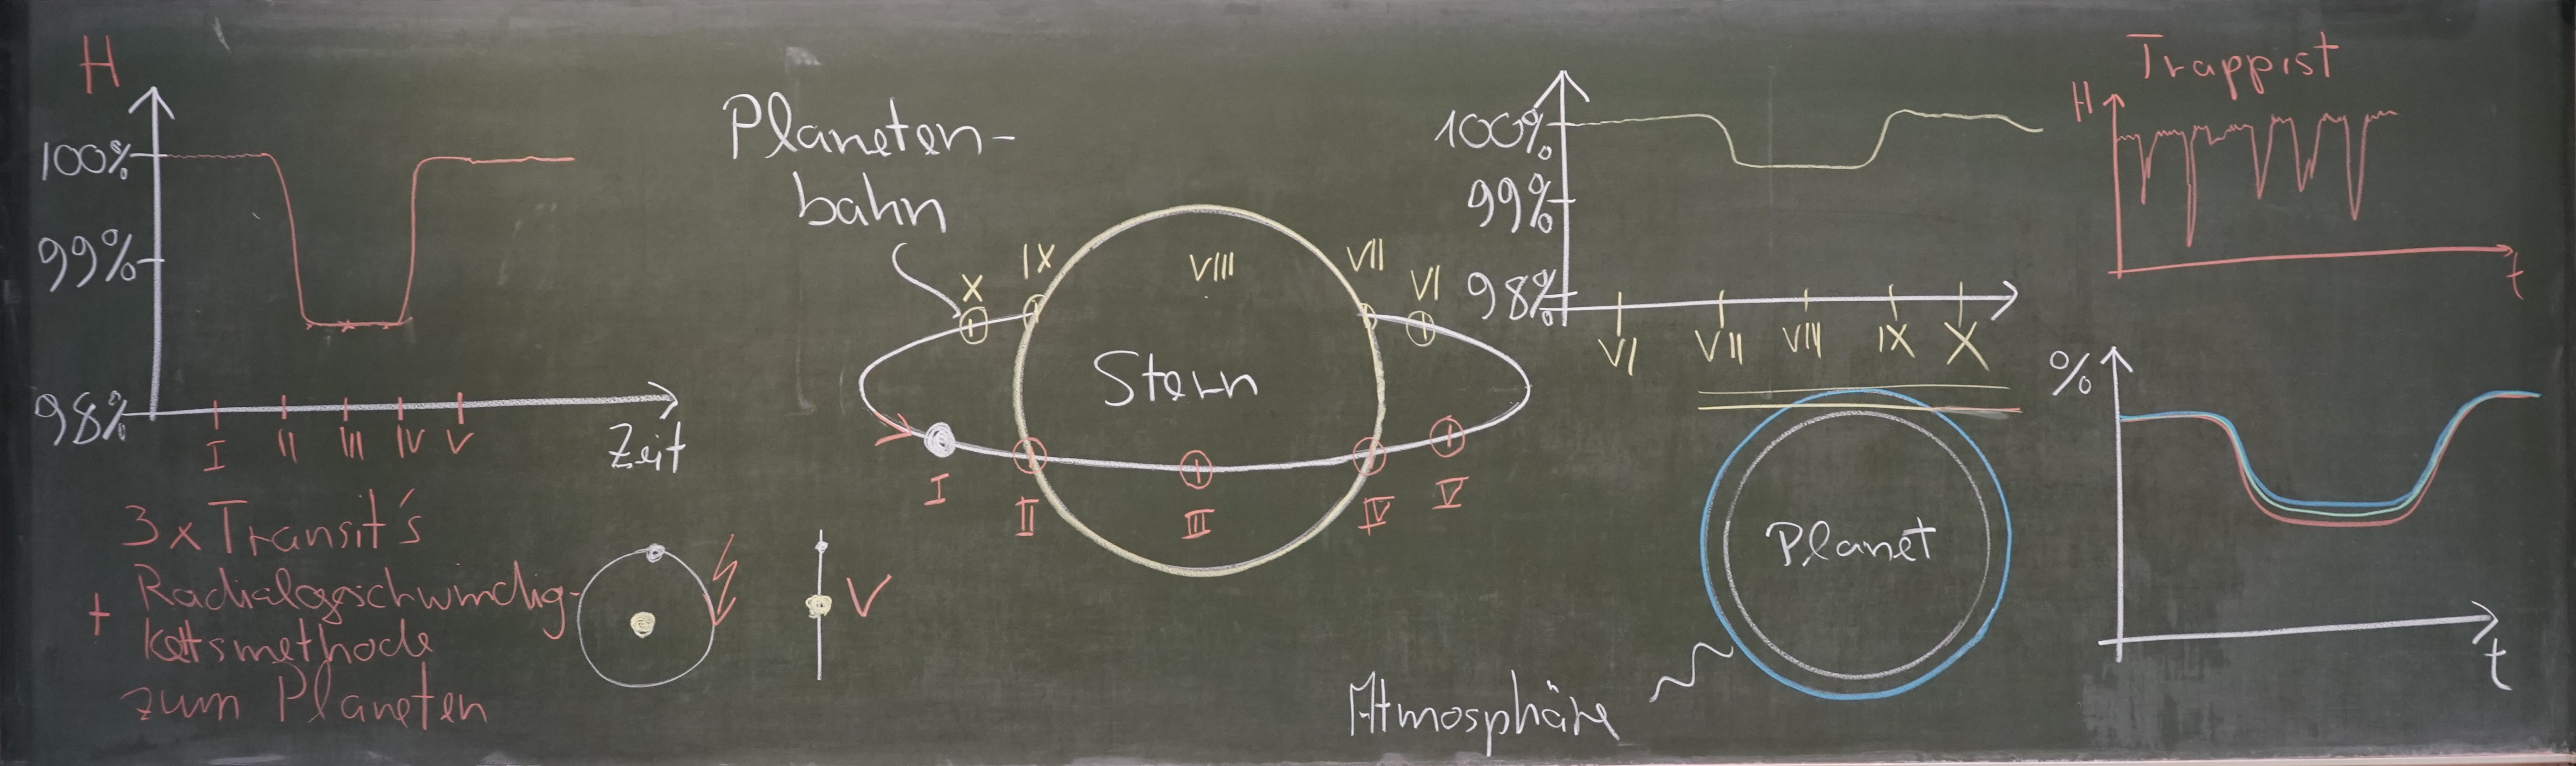 H
100%
99%
98%
I II III IV V
Zeit
3x Transit's
+ Radialgeschwindig-
keitsmethode
zum Planeten
V
Planeten-
bahn
X IX VIII VII VI
Stern
I II III IV V
100%
99%
98%
VI VII VIII IX X
Planet
Atmosphäre
Trappist
H
t
%
t